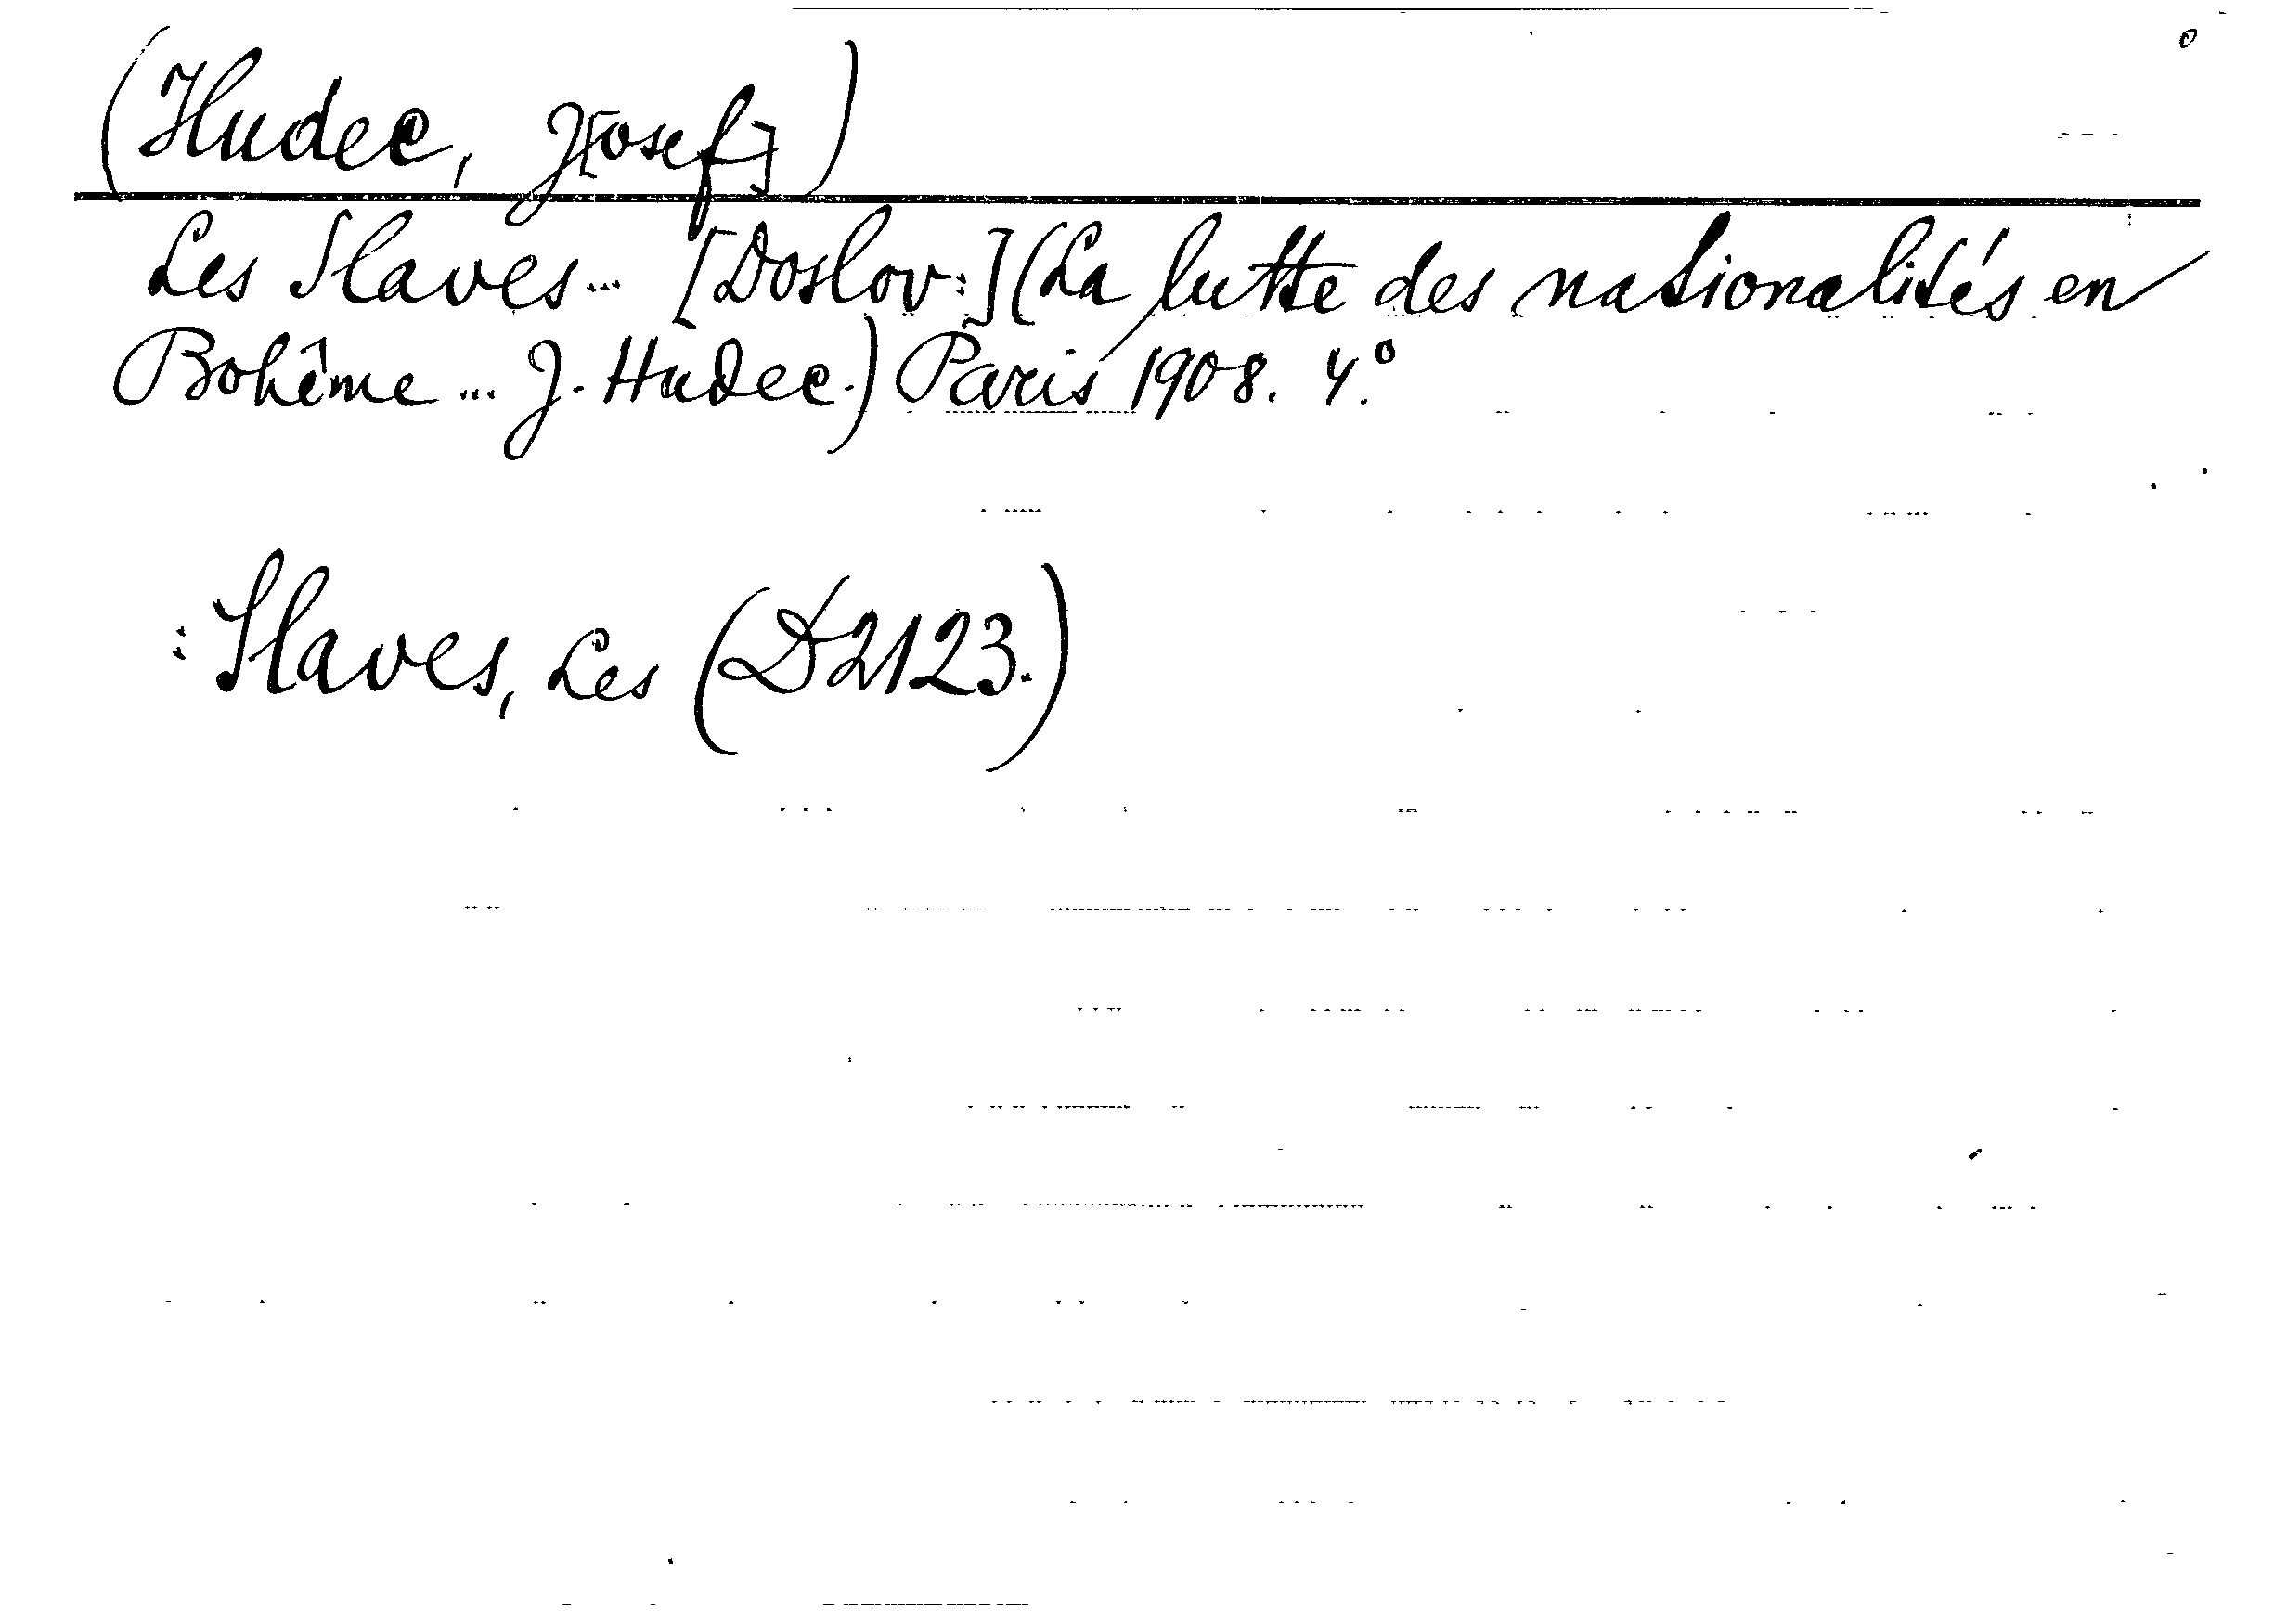 (Hudec, J[osef])
Les Slaves... [Doslov:] (La lutte des nationalités en
Bohême... J. Hudec.) Paris 1908. 4.°
: Slaves, Les (D2123.)